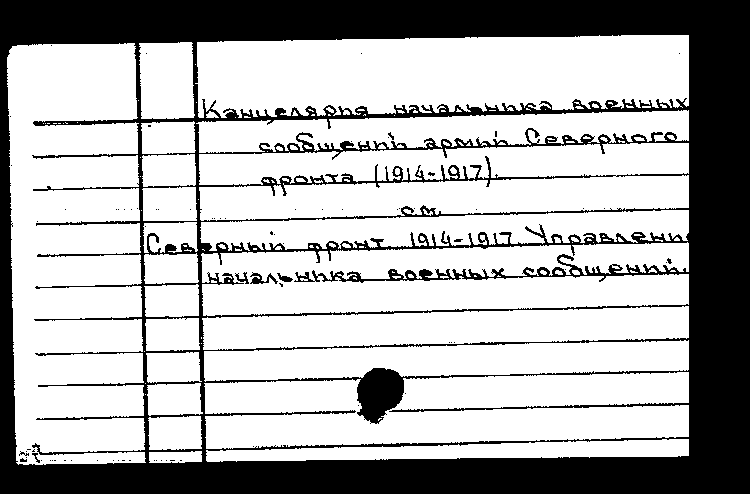 Канцелярия начальника военных
сообщений армий Северного
фронта (1914-1917).
см.
Северный фронт 1914-1917. Управление
начальника военных сообщений.